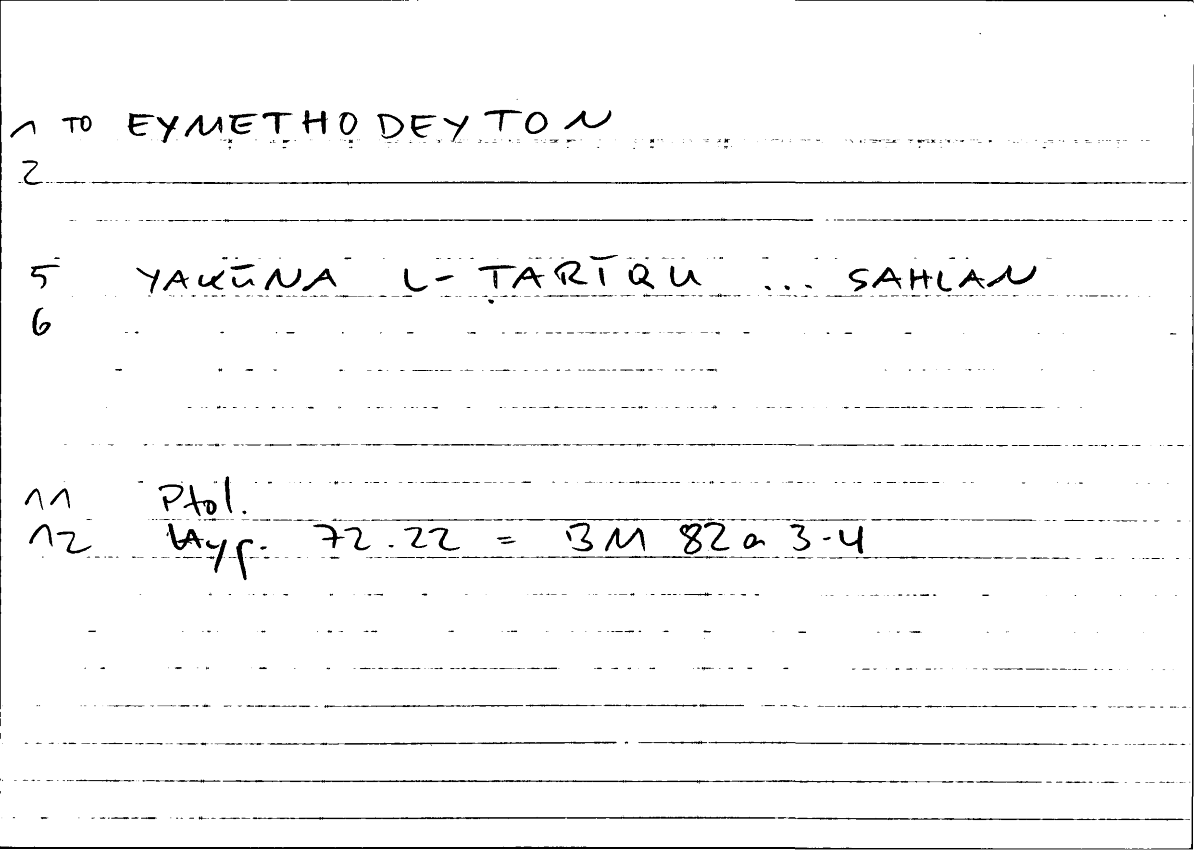 1 TO EYMETHODEYTON
2
5 YAKŪNA L-ṬARĪQU ... SAHLAN
6
11 Ptol.
12 Hyp. 72.22 = BM 82a 3-4